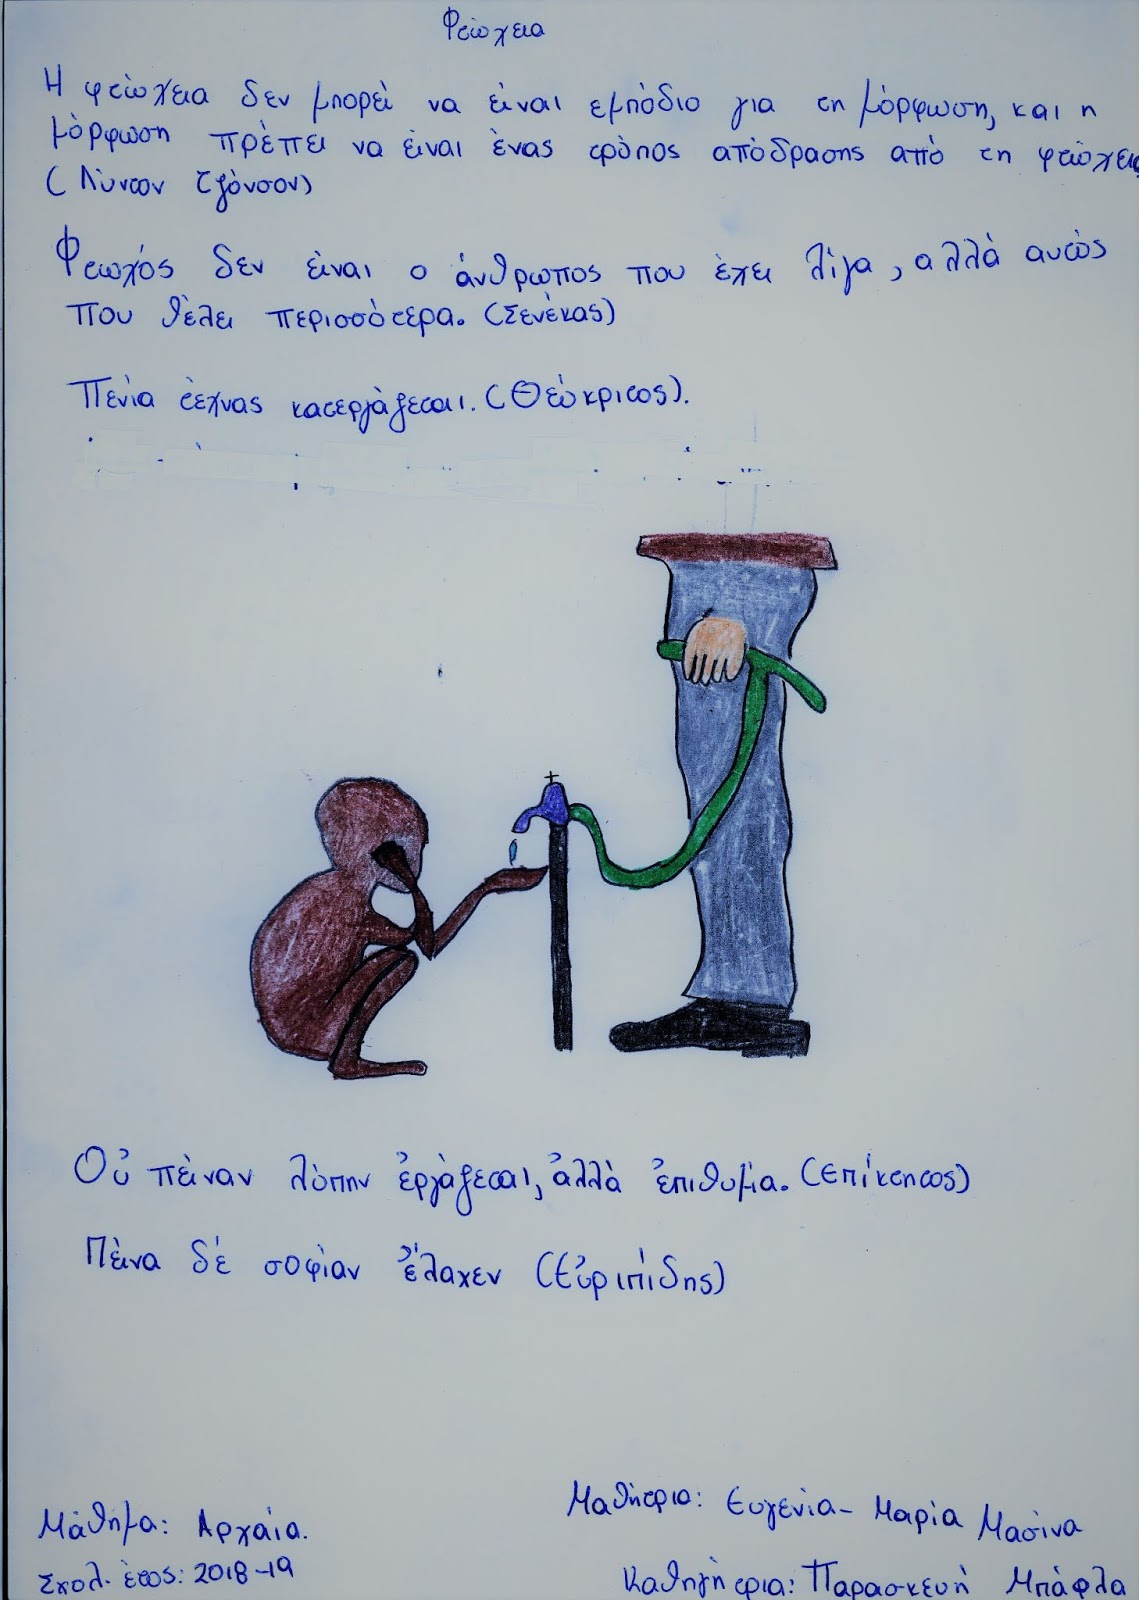 Φτώχεια
Η φτώχεια δεν μπορεί να είναι εμπόδιο για τη μόρφωση, και η
μόρφωση πρέπει να είναι ένας τρόπος απόδρασης από τη φτώχεια
(Λύντον Τζόνσον)
Φτωχός δεν είναι ο άνθρωπος που έχει λίγα, αλλά αυτός
που θέλει περισσότερα. (Σενέκας)
Πενία τέχνας κατεργάζεται. (Θεόκριτος).
Οὐ πείναν λύπην ἐργάζεται, ἀλλὰ ἐπιθυμία. (Επίκτητος)
Πείνα δέ σοφίαν ἔλαχεν (Εὐριπίδης)
Μάθημα: Αρχαία.
Σχολ. έτος: 2018-19
Μαθήτρια: Ευγενία-Μαρία Μασίνα
Καθηγήτρια: Παρασκευή Μπάφλα